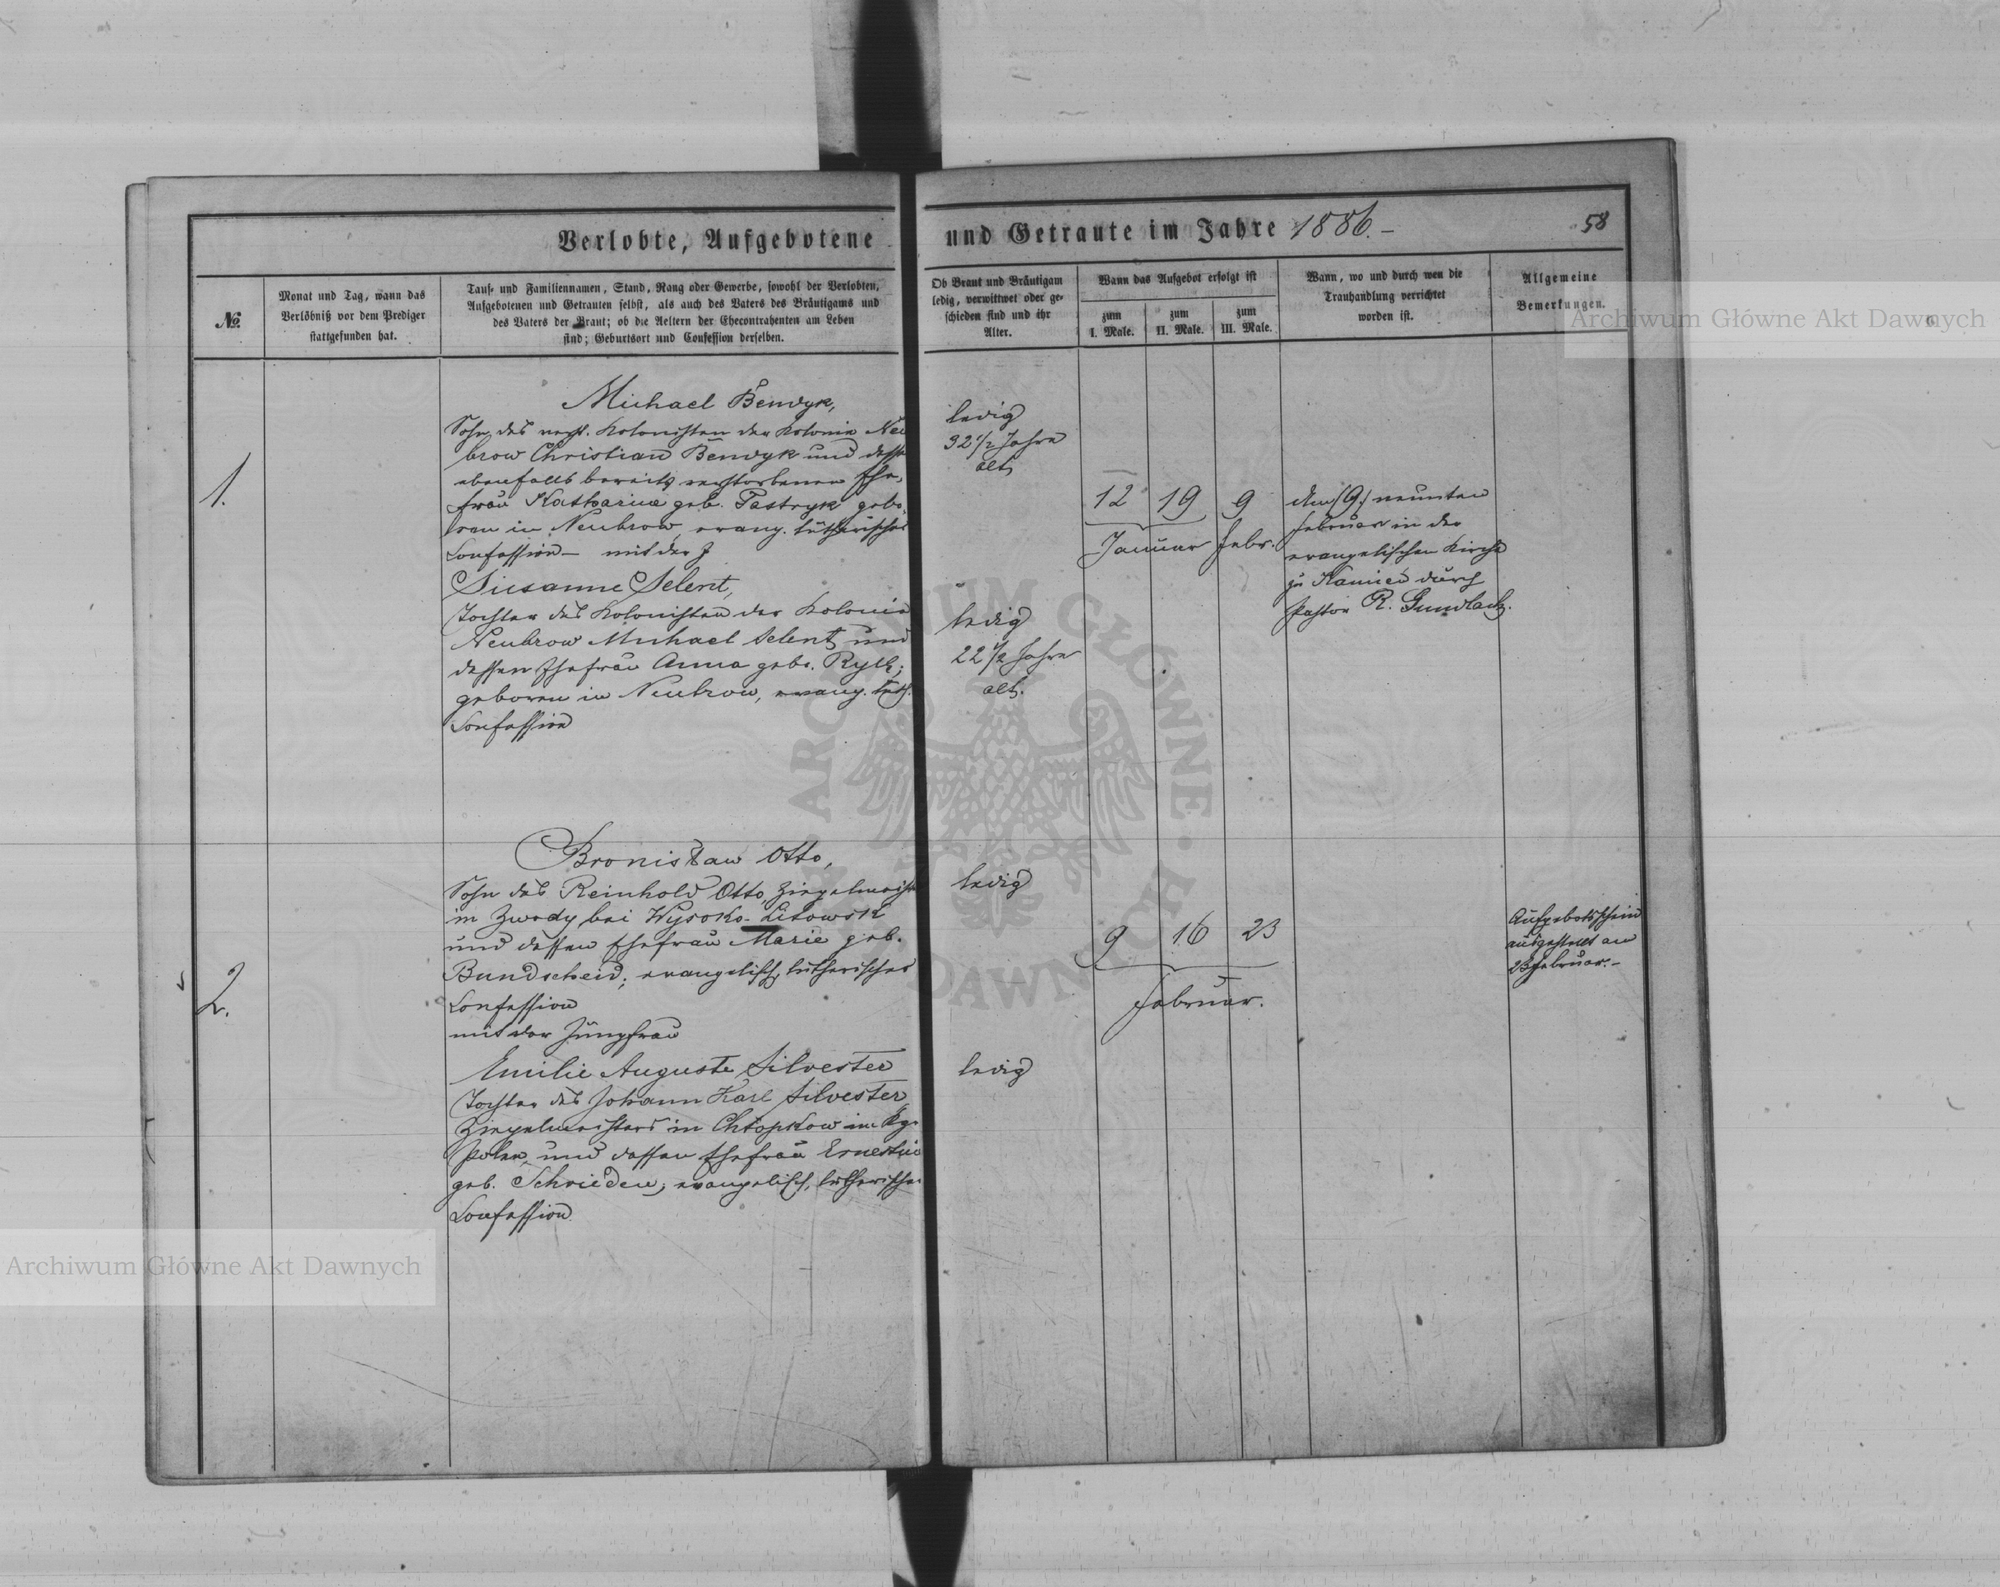 Verlobte, Aufgebotene und Getraute im Jahre 1886.-
58
No.
Monat und Tag, wann das
Verlöbniß vor dem Prediger
stattgefunden hat.
Tauf- und Familiennamen, Stand, Rang oder Gewerbe, sowohl der Verlobten,
Aufgebotenen und Getrauten selbst, als auch des Vaters des Bräutigams und
des Vaters der Braut; ob die Aeltern der Ehecontrahenten am Leben
sind; Geburtsort und Confession derselben.
Ob Braut und Bräutigam
ledig, verwittwet oder ge-
schieden sind und ihr
Alter.
Wann das Aufgebot erfolgt ist
zum
I. Male.
zum
II. Male.
zum
III. Male.
Wann, wo und durch wen die
Trauhandlung verrichtet
worden ist.
Allgemeine
Bemerkungen.
1.
Michael Bendyk,
Sohn des verst. Kolonisten der Kolonie Neu
brow Christian Bendyk und dess
ebenfalls bereits verstorbenen Ehe,
frau Katharina geb. Pastryk gebo,
ren in Neubrow, evang. lutherischer
Confession – mit der
Susanne Selent,
Tochter des Kolonisten der Kolonie
Neubrow Michael Selent und
dessen Ehefrau Anna geb. Ryll;
geboren in Neubrow, evang. luth.
Confession
ledig
32 1/2 Jahre
alt
ledig
22 1/2 Jahre
alt.
12 19 9
Januar Febr.
den (9) neunten
Februar in der
evangelischen Kirche
zu Kamień durch
Pastor R. Gundlach.
2.
Bronisław Otto,
Sohn des Reinhold Otto, Ziegelmeist
in Zwody bei Wysoko-Litowsk
und dessen Ehefrau Marie geb.
Bundscheid; evangelisch lutherischer
Confession
mit der Jungfrau
Emilie Auguste Silvester
Tochter des Johann Karl Silvester
Ziegelmeisters in Chłopkow im Kgr.
Polen, und dessen Ehefrau Ernestine
geb. Schrieden; evangelisch lutherischer
Confession
ledig
ledig
9 16 23
Februar.
Aufgebotsschein
ausgestellt am
23 Februar.-
Archiwum Główne Akt Dawnych
Archiwum Główne Akt Dawnych
ARCHIWUM GŁÓWNE AKT DAWNYCH